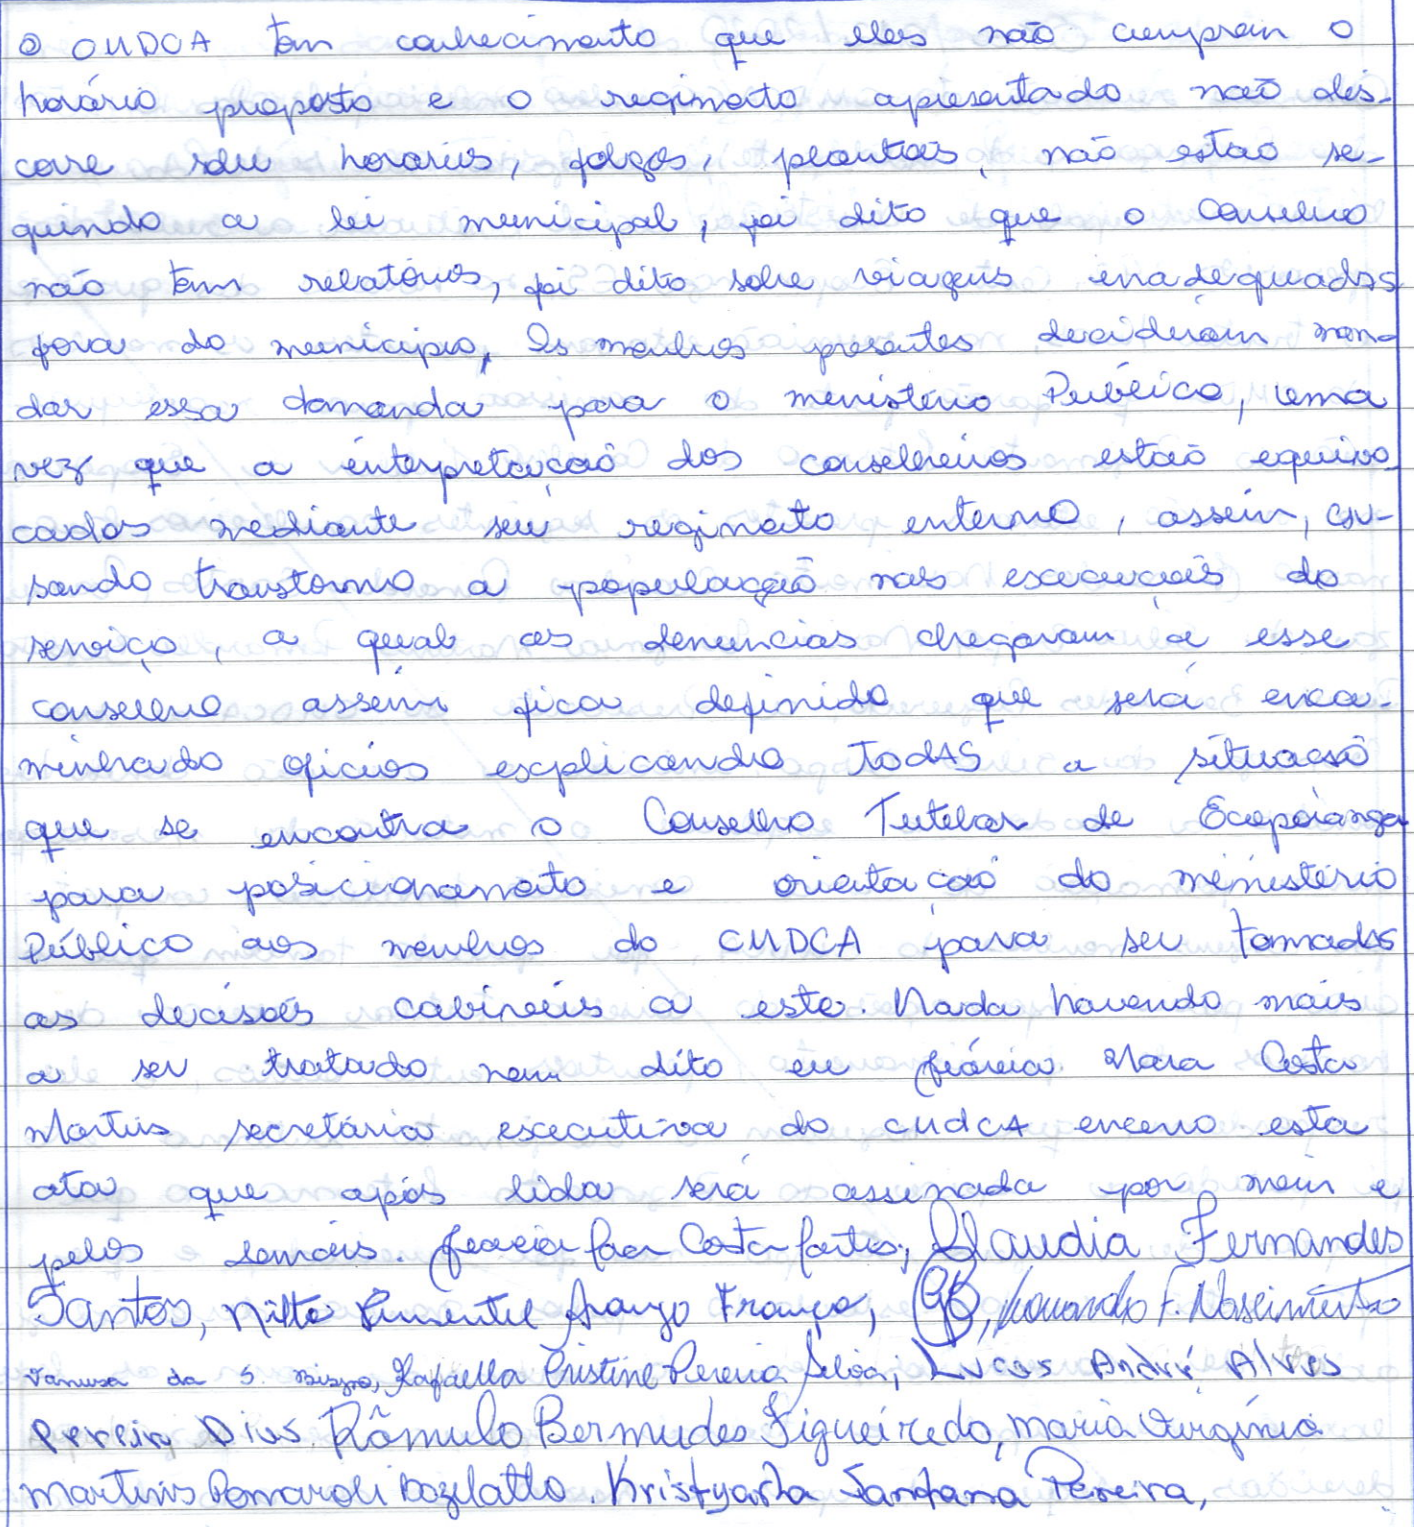 O CMDCA tem conhecimento que eles não cumprem o
horário proposto e o regimento apresentado não dis-
corre sobre horários, folgas, plantões, não estão se-
guindo a lei municipal, foi dito que o Conselho
não tem relatórios, foi dito sobre viagens inadequadas
fora do município, Os membros presentes decidiram man-
dar essa demanda para o ministério Público, uma
vez que a interpretação dos conselheiros estão equivo-
cados mediante seu regimento interno, assim, cau-
sando transtorno a população nas execuções do
serviço, a qual as denuncias chegaram a esse
conselho assim fica definido que será enca-
minhado ofícios explicando TodAS a situação
que se encontra o Conselho Tutelar de Ecoporanga
para posicionamento e orientação do ministério
Público aos membros do CMDCA para ser tomadas
as decisões cabíveis a este. Nada havendo mais
a ser tratado nem dito eu Mara Costa
Martins secretária executiva do CMdCA encerro esta
ata que após lida será assinada por mim e
pelos demais. Costa Claudia Fernandes
Santos, Nilto Pimentel Araujo França, Leonardo F. Nascimento
Vanusa da S. Rafaella Cristine Pereira Lucas André Alves
Pereira Dias, Rômulo Bermudes Figueiredo, Maria Virgínia
Martins Pomaroli Bozelatto. Kristyasha Santana Pereira,